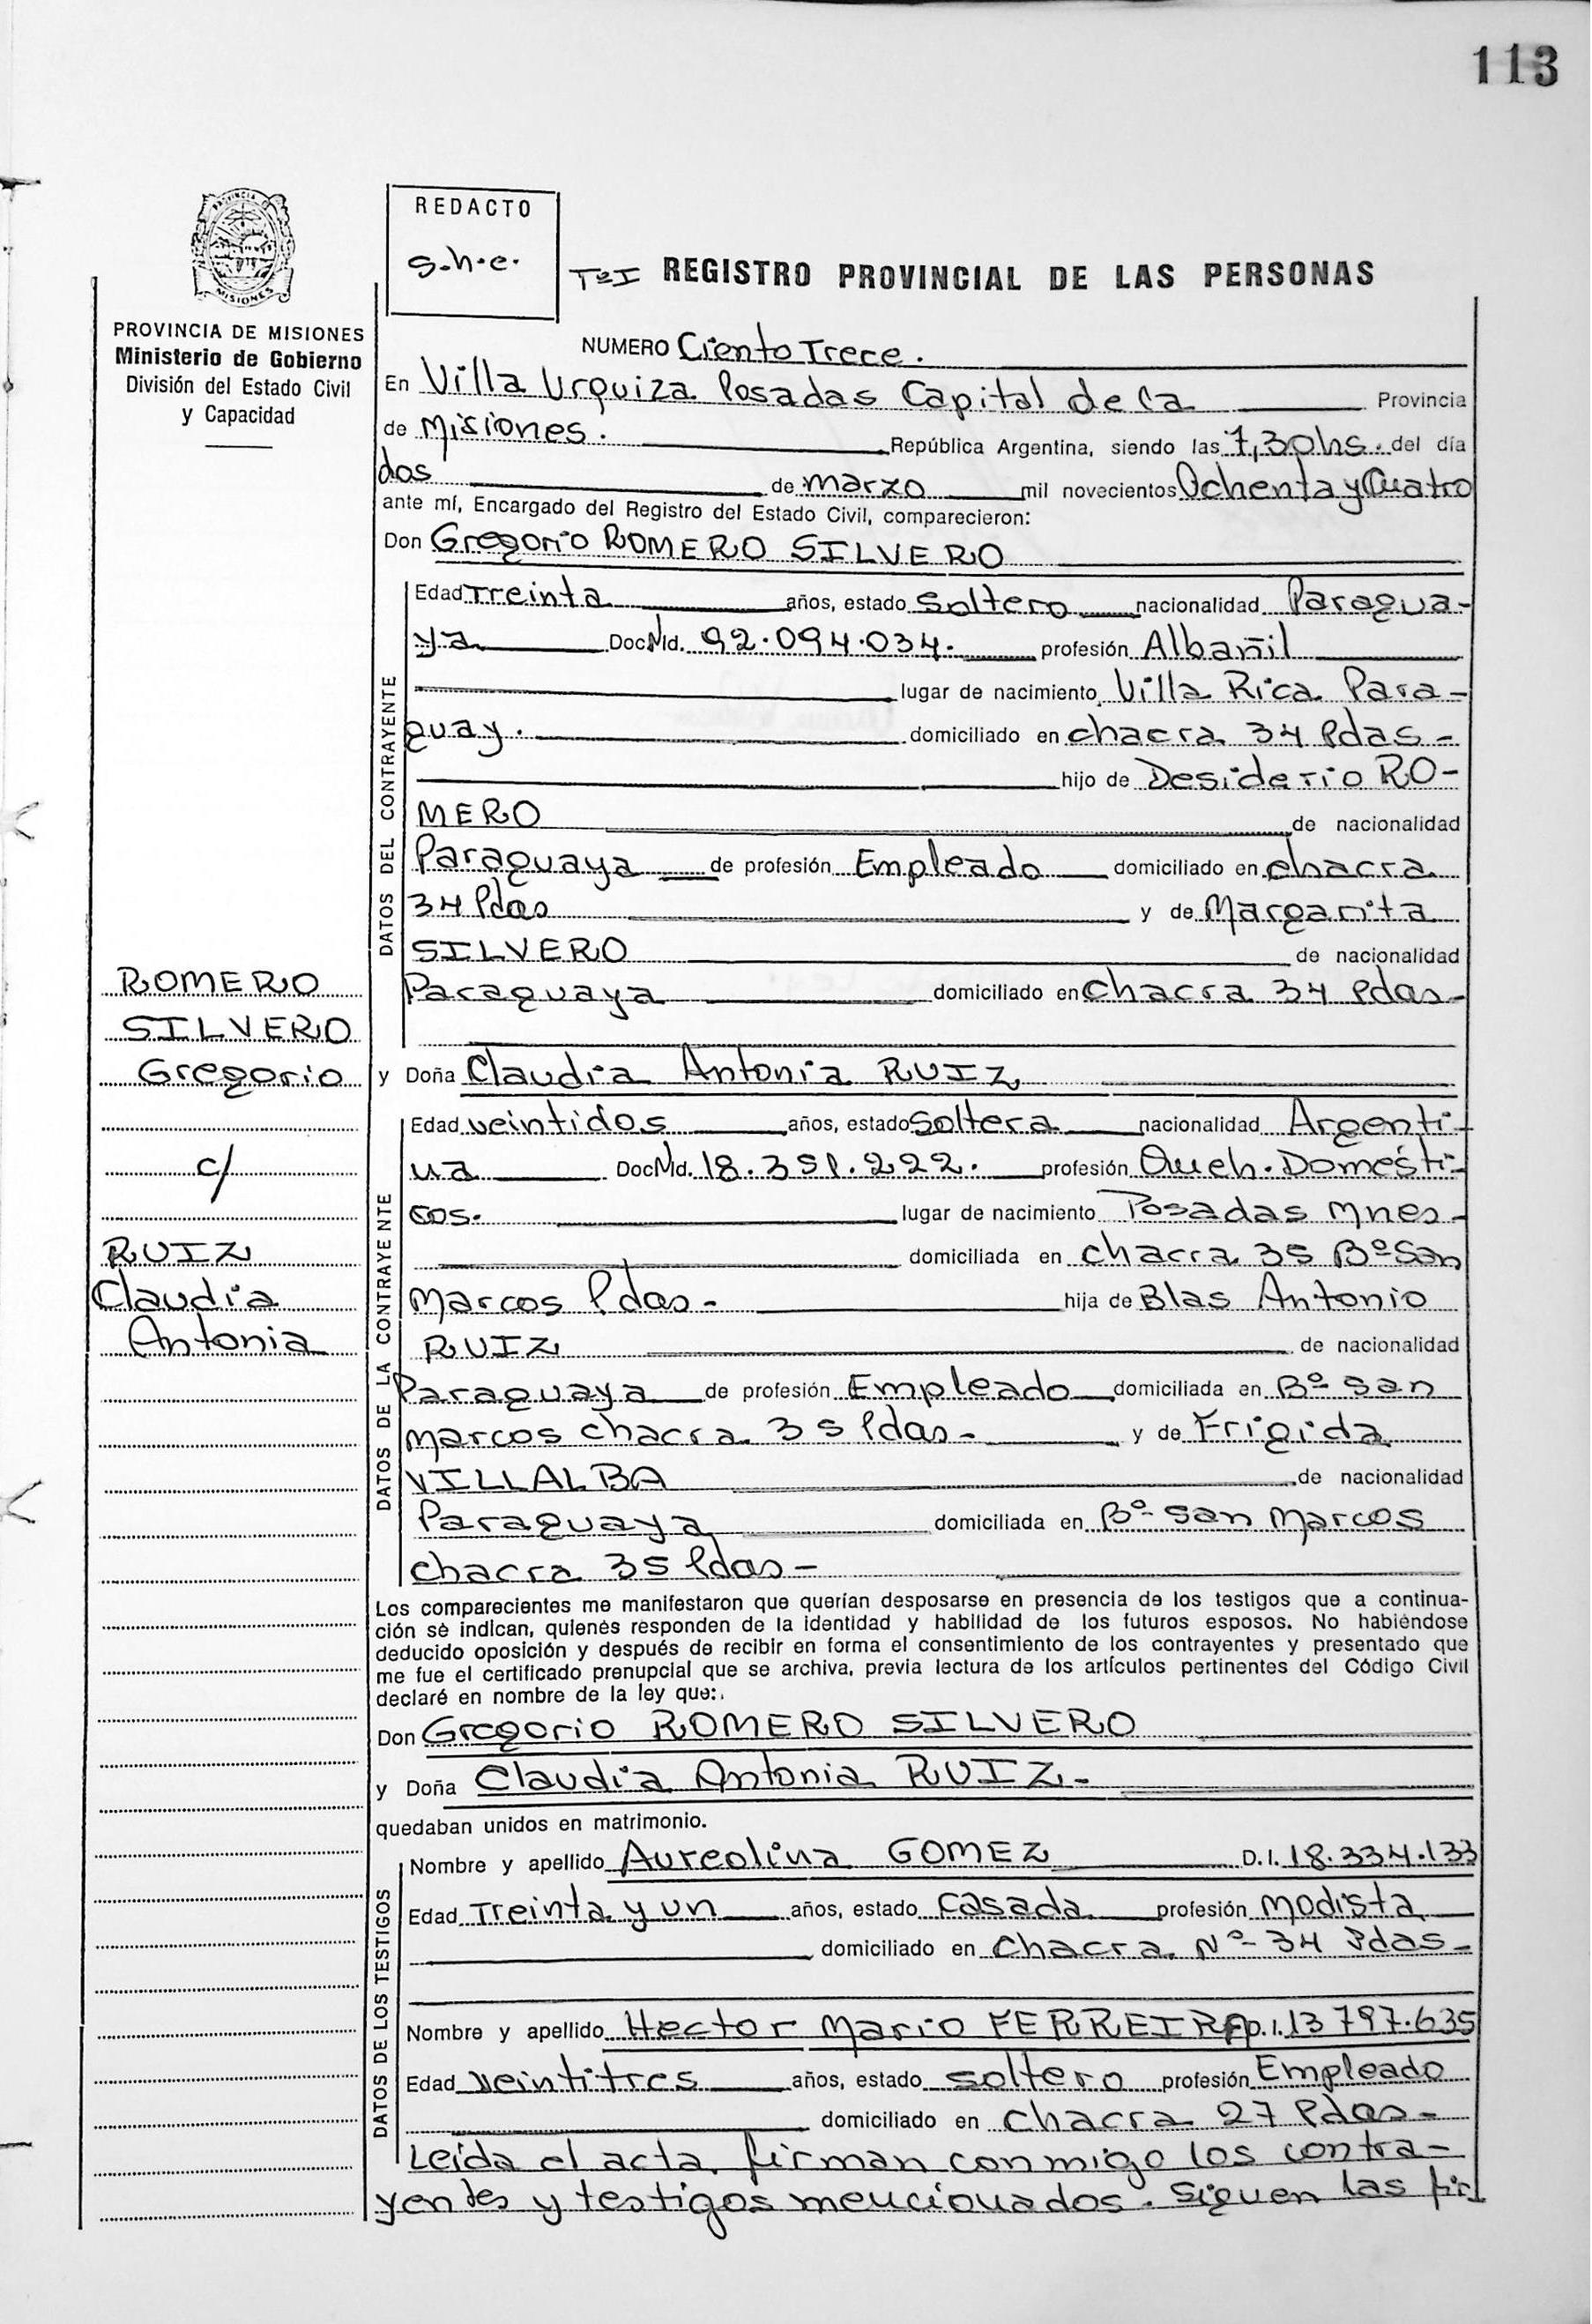 113
PROVINCIA DE
MISIONES
REDACTO
s.h.e.
TºI REGISTRO PROVINCIAL DE LAS PERSONAS
PROVINCIA DE MISIONES
Ministerio de Gobierno
División del Estado Civil
y Capacidad
NUMERO Ciento Trece.
En Villa Urquiza Posadas Capital de la Provincia
de Misiones. República Argentina, siendo las 7,30hs. del día
dos de marzo mil novecientos Ochenta y Cuatro
ante mí, Encargado del Registro del Estado Civil, comparecieron:
Don Gregorio ROMERO SILVERO
DATOS DEL CONTRAYENTE
Edad Treinta años, estado Soltero nacionalidad Paragua-
ya Doc Nld. 92.094.034. profesión Albañil
lugar de nacimiento Villa Rica Para-
guay. domiciliado en chacra 34 Pdas-
hijo de Desiderio RO-
MERO de nacionalidad
Paraguaya de profesión Empleado domiciliado en chacra
34 Pdas y de Margarita
SILVERO de nacionalidad
Paraguaya domiciliado en chacra 34 Pdas-
ROMERO
SILVERO
Gregorio
c/
RUIZ
Claudia
Antonia
y Doña Claudia Antonia RUIZ
DATOS DE LA CONTRAYENTE
Edad veintidos años, estado Soltera nacionalidad Argenti-
na Doc Nld. 18.351.222. profesión Queh. Domésti-
cos. lugar de nacimiento Posadas Mnes-
domiciliada en chacra 35 Bº San
Marcos Pdas- hija de Blas Antonio
RUIZ de nacionalidad
Paraguaya de profesión Empleado domiciliada en Bº San
Marcos chacra 35 Pdas- y de Frigida
VILLALBA de nacionalidad
Paraguaya domiciliada en Bº San Marcos
chacra 35 Pdas-
Los comparecientes me manifestaron que querían desposarse en presencia de los testigos que a continua-
ción se indican, quienes responden de la identidad y habilidad de los futuros esposos. No habiéndose
deducido oposición y después de recibir en forma el consentimiento de los contrayentes y presentado que
me fue el certificado prenupcial que se archiva, previa lectura de los artículos pertinentes del Código Civil
declaré en nombre de la ley que:
Don Gregorio ROMERO SILVERO
y Doña Claudia Antonia RUIZ-
quedaban unidos en matrimonio.
DATOS DE LOS TESTIGOS
Nombre y apellido Aureolina GOMEZ D.I. 18.334.133
Edad Treinta y un años, estado casada profesión Modista
domiciliado en Chacra Nº 34 Pdas-
Nombre y apellido Hector Mario FERREIRA D.I. 13 797.635
Edad veintitres años, estado soltero profesión Empleado
domiciliado en chacra 27 Pdas-
Leída el acta, firman conmigo los contra-
yentes y testigos mencionados. siguen las fir